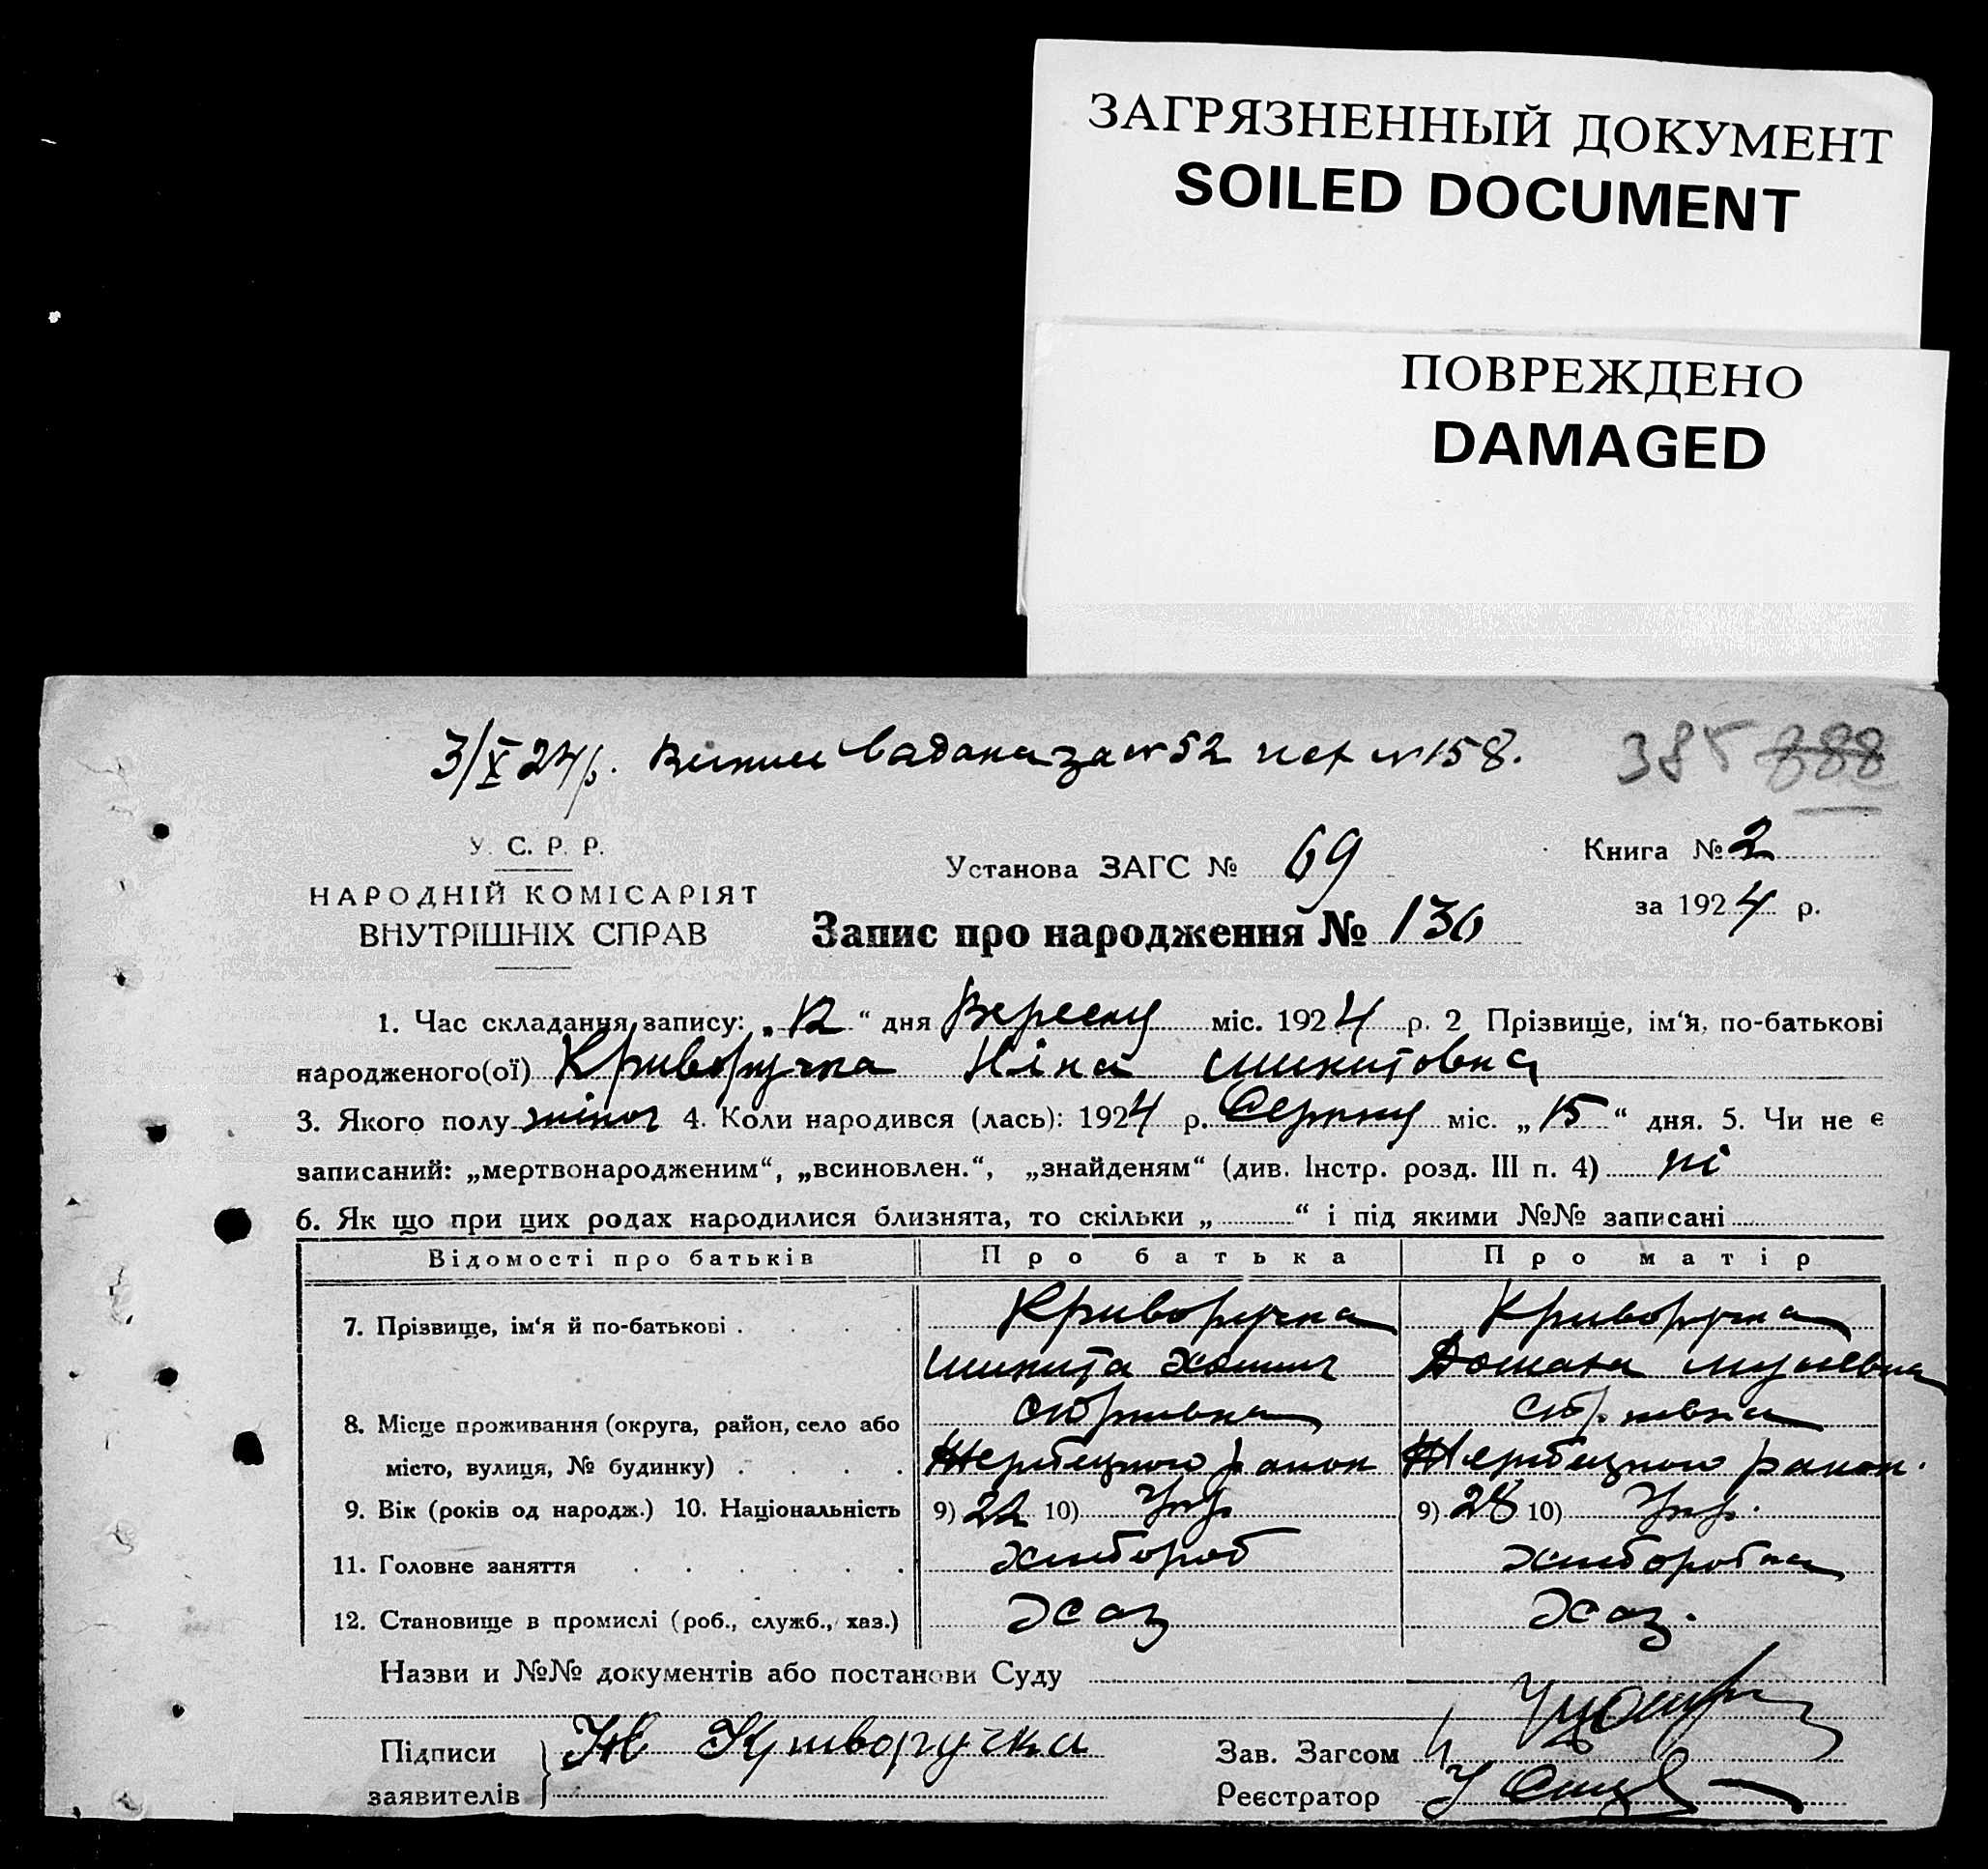 ЗАГРЯЗНЕННЫЙ ДОКУМЕНТ
SOILED DOCUMENT
ПОВРЕЖДЕНО
DAMAGED
3/X 24р. за № 52 № 158. 385 888
У. С. Р. Р.
НАРОДНІЙ КОМІСАРІЯТ
ВНУТРІШНІХ СПРАВ
Установа ЗАГС № 69
Книга № 2
за 1924 р.
Запис про народження № 130
1. Час складання запису: „12“ дня Вересня міс. 1924 р. 2 Прізвище, ім‘я, по-батькові
народженого(ої) Криворучка Ніна Микитовна
3. Якого полу жіноч 4. Коли народився (лась): 1924 р. Серпня міс. „15“ дня. 5. Чи не є
записаний: „мертвонародженим“, „всиновлен.“, „знайденям“ (див. Інстр. розд. III п. 4) ні
6. Як що при цих родах народилися близнята, то скільки „ “ і під якими №№ записані
Відомості про батьків Про батька Про матір
7. Прізвище, ім‘я й по-батькові Криворучка Криворучка
Микита
8. Місце проживання (округа, район, село або
місто, вулиця, № будинку)
9. Вік (років од народж.) 10. Національність 9) 22 10) Укр. 9) 28 10) Укр.
11. Головне заняття хлібороб хлиборобка
12. Становище в промислі (роб., служб., хаз.) Хаз Хаз.
Назви и №№ документів або постанови Суду
Підписи Криворучка Зав. Загсом
заявителів Реєстратор